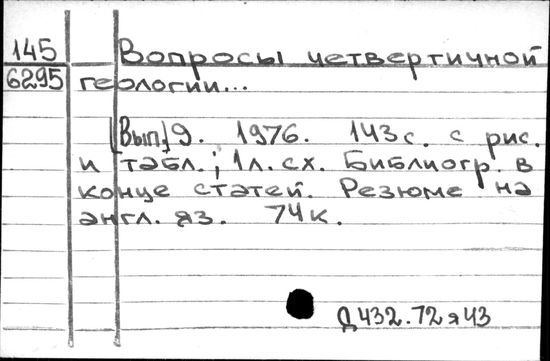 145 Вопросы четвертичной
6295 геологии...
[Вып.] 9. 1976. 143 с. с рис.
и табл.; 1 л. сх. Библиогр. в
конце статей. Резюме на
англ. яз. 74 к.
Д 432.72 я 43